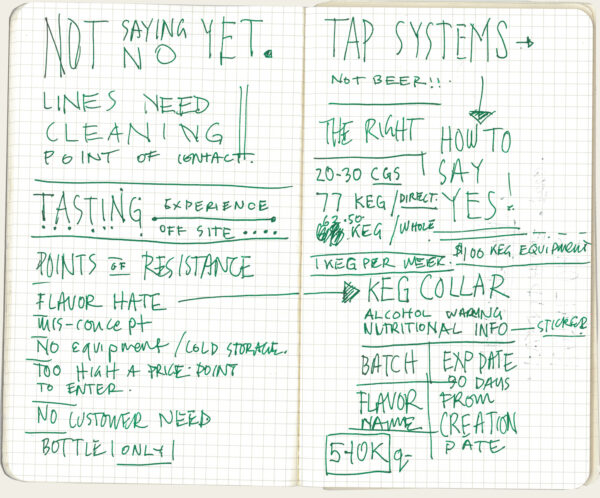 NOT SAYING NO YET.
LINES NEED
CLEANING
POINT OF CONTACT.
TASTING EXPERIENCE
OFF SITE ....
POINTS OF RESISTANCE
FLAVOR HATE
mis-concept
NO equipment / COLD STORAGE.
TOO HIGH A PRICE-POINT
TO ENTER.
NO CUSTOMER NEED
BOTTLE | ONLY |
TAP SYSTEMS →
NOT BEER!!.
THE RIGHT
HOW TO
SAY
YES!
20-30 CGS
77 KEG / DIRECT.
62.50
KEG / WHOLE
1 KEG PER WEEK.
$100 KEG EQUIPMENT
KEG COLLAR
ALCOHOL WARNING
NUTRITIONAL INFO — STICKER
BATCH
FLAVOR
NAME
EXP DATE
90 DAYS
FROM
CREATION
DATE
5-10K